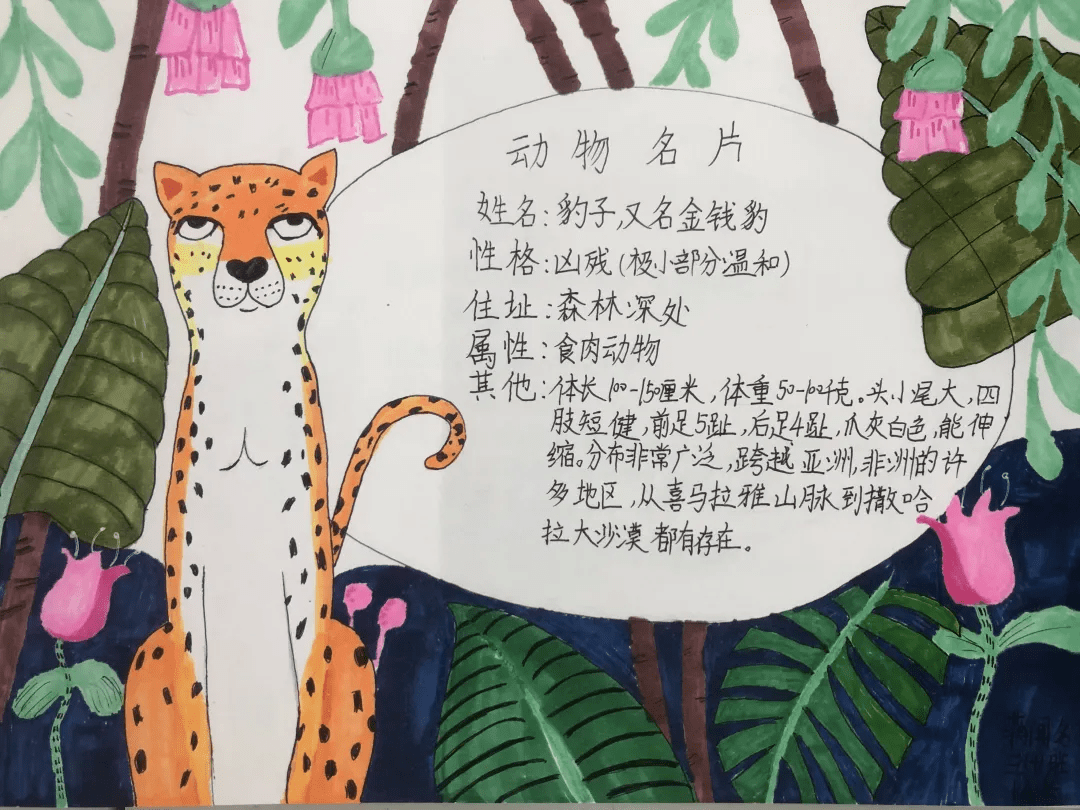 动物名片
姓名:豹子,又名金钱豹
性格:凶残(极小部分温和)
住址:森林深处
属性:食肉动物
其他:体长100-150厘米,体重50-102千克。头小尾大,四
肢短健,前足5趾,后足4趾,爪灰白色,能伸
缩。分布非常广泛,跨越亚洲,非洲的许
多地区,从喜马拉雅山脉到撒哈
拉大沙漠都有存在。